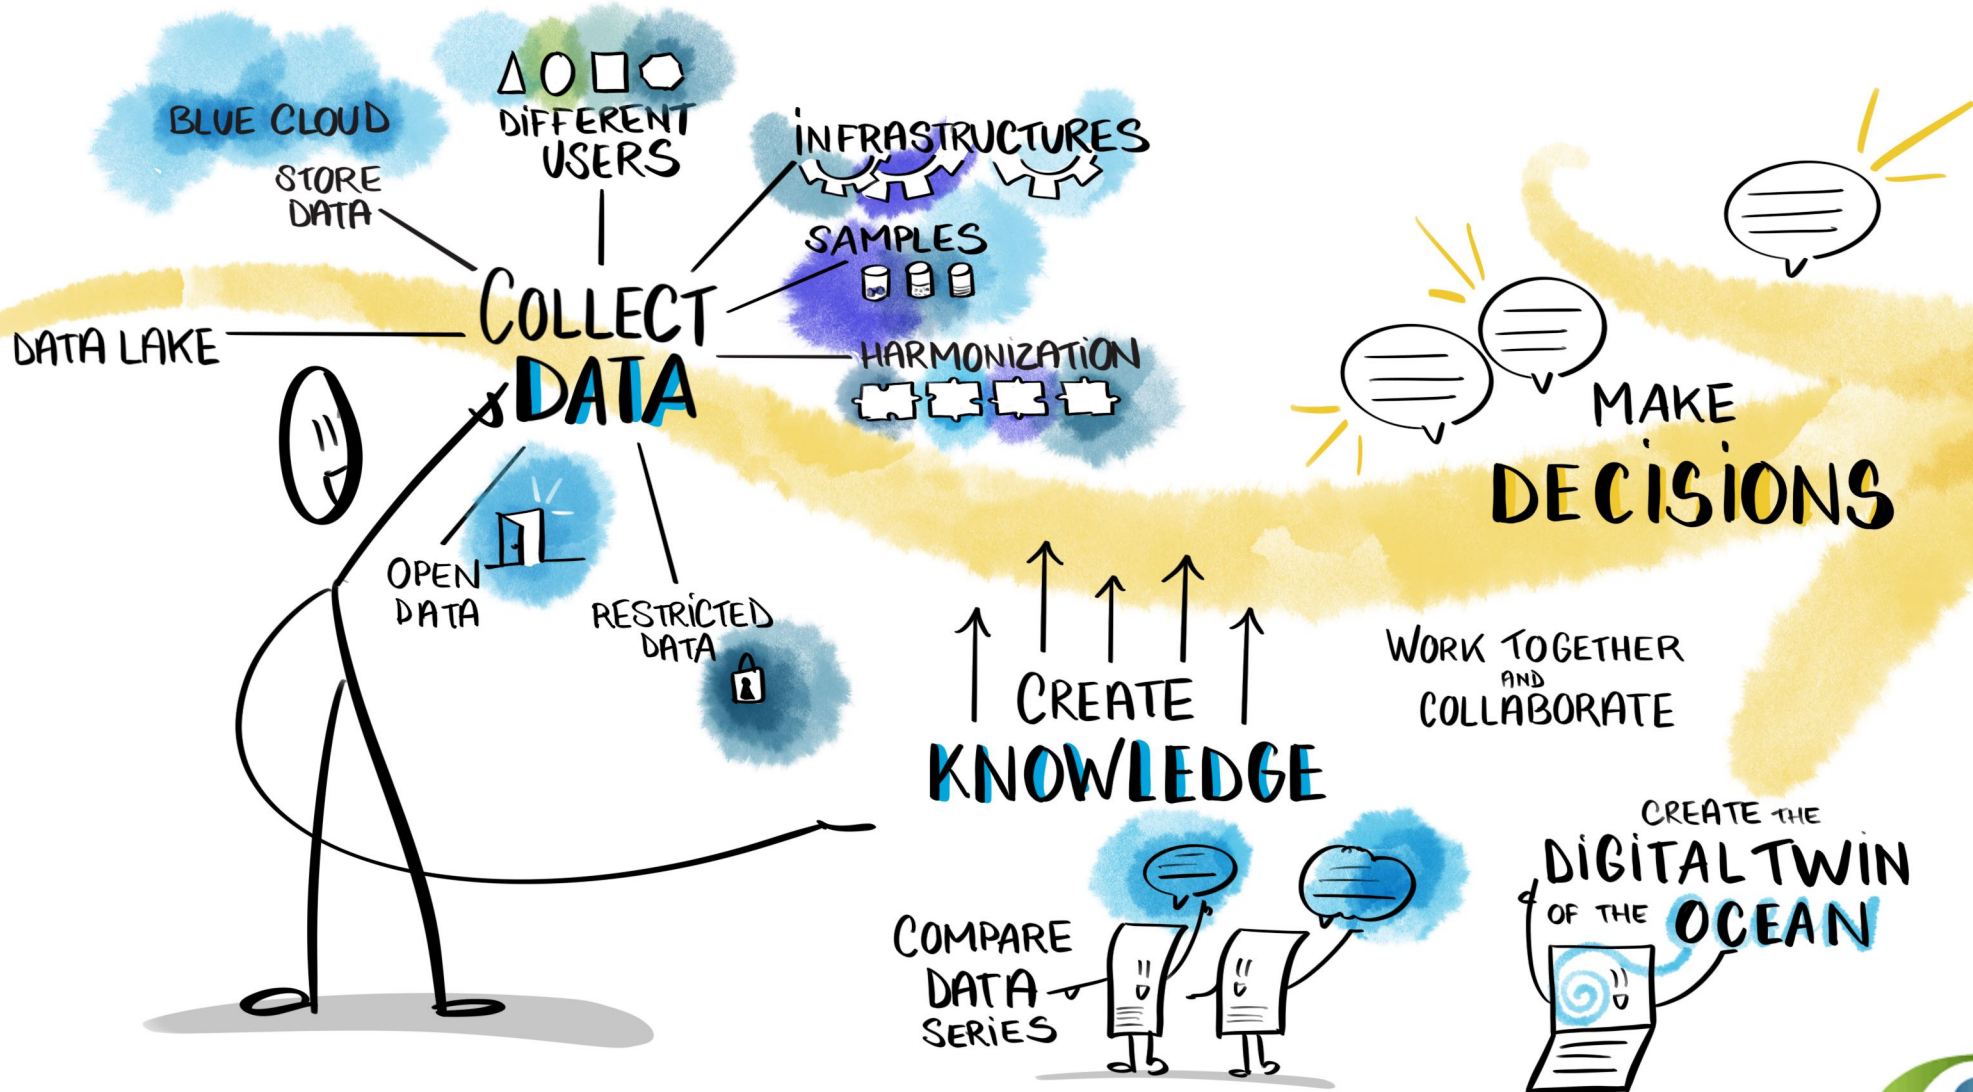 BLUE CLOUD
STORE
DATA
DIFFERENT
USERS
INFRASTRUCTURES
SAMPLES
HARMONIZATION
DATA LAKE
COLLECT
DATA
OPEN
DATA
RESTRICTED
DATA
MAKE
DECISIONS
CREATE
KNOWLEDGE
WORK TOGETHER
AND
COLLABORATE
COMPARE
DATA
SERIES
CREATE THE
DIGITAL TWIN
OF THE OCEAN